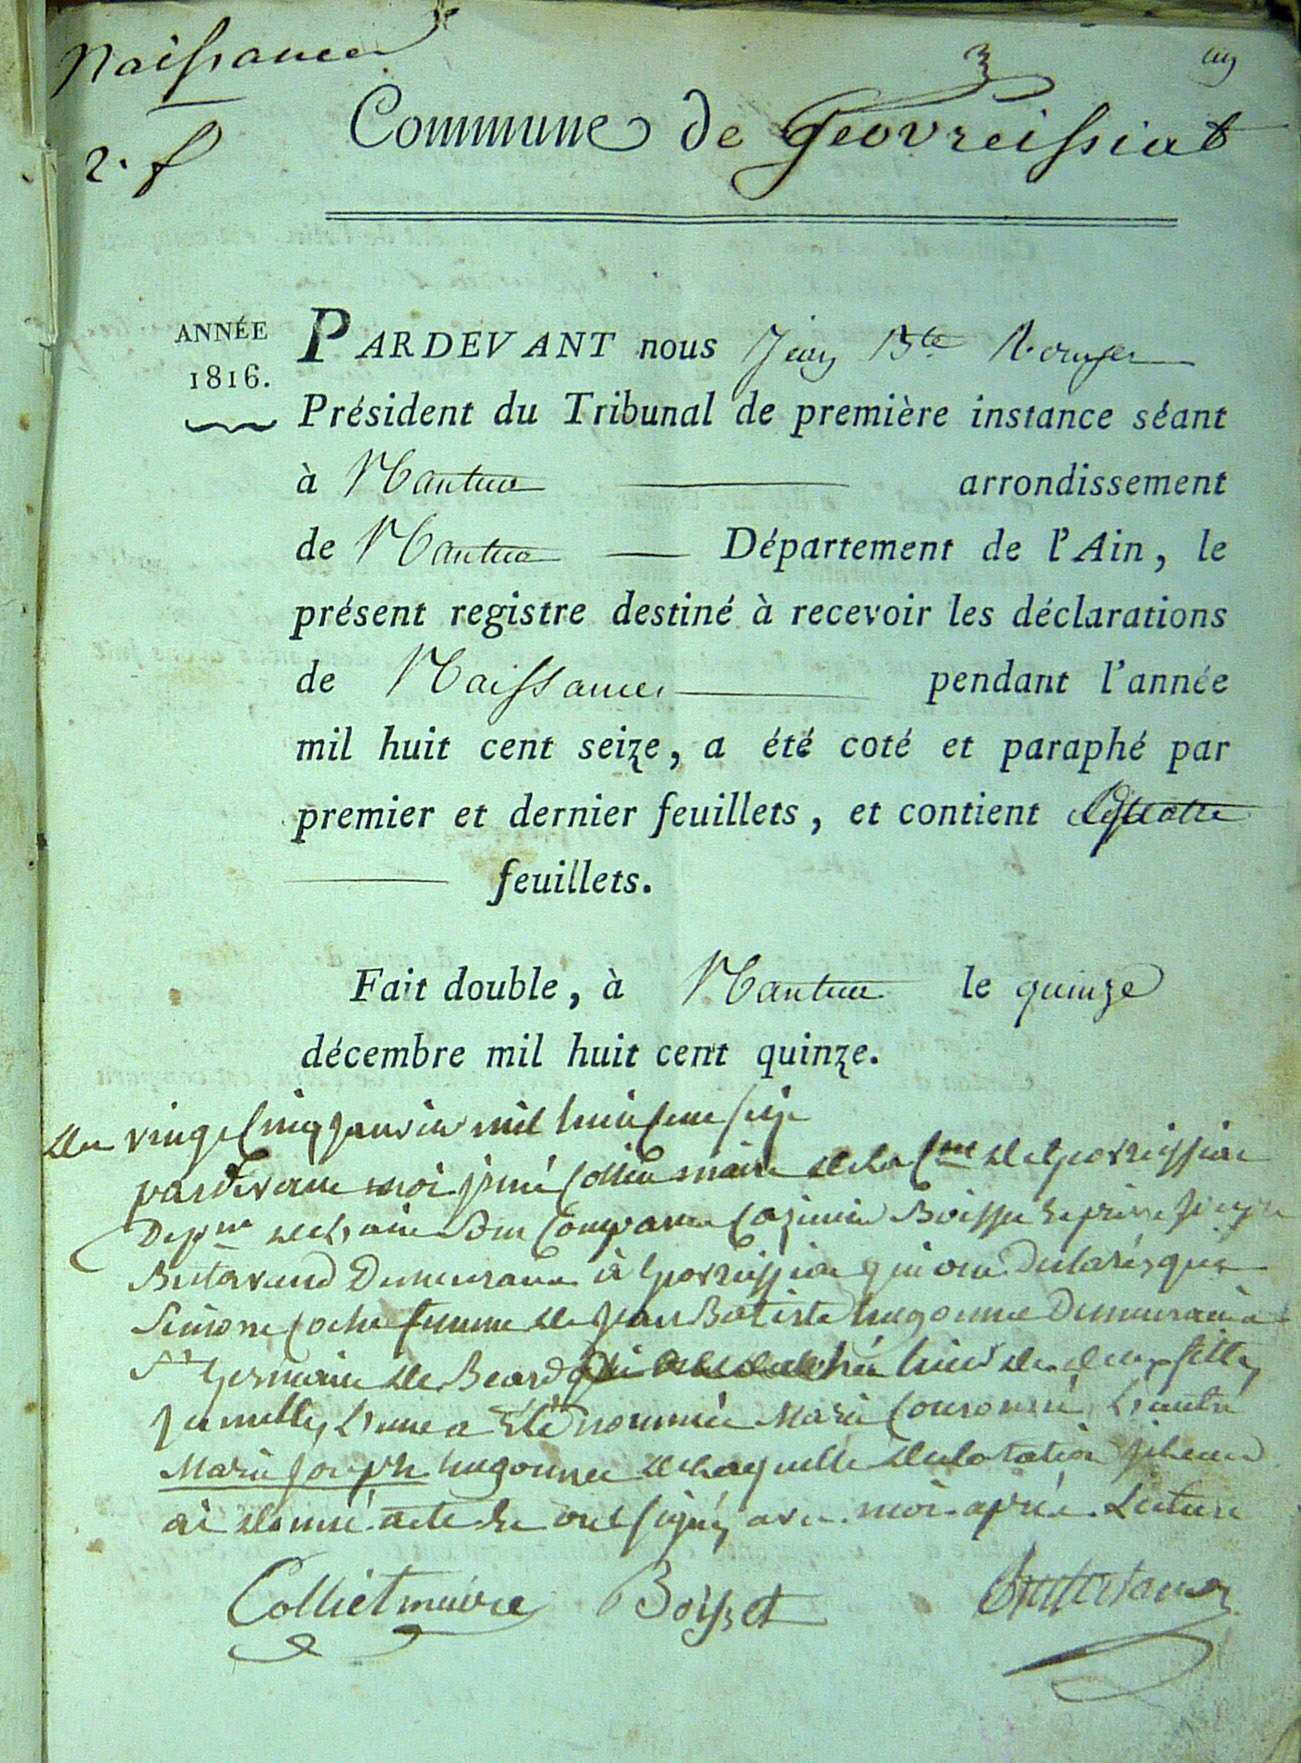 Naissances
Commune de Geovreissiat
2. f
ANNÉE
1816.
PARDEVANT nous Jean Bte
Président du Tribunal de première instance séant
à Nantua arrondissement
de Nantua Département de l'Ain, le
présent registre destiné à recevoir les déclarations
de Naissances pendant l'année
mil huit cent seize, a été coté et paraphé par
premier et dernier feuillets, et contient quatre
feuillets.
Fait double, à Nantua le quinze
décembre mil huit cent quinze.
vingt cinq janvier mil huit cent seize
pardevant moi maire de la Cne de Geovreissiat
Depme de lain sont comparu Boisset
demeurant à Geovreissiat qui ont declarés que
femme de Jean Batiste hugonnet demeurant a
St Germain de Beard hier de deux filles
jumelles, L'une a été nommée Marie L'autre
Marie Joseph hugonnet de laquelle declaration je leur
ai donné acte et ont signés avec moi après Lecture
Colliet maire Boisset